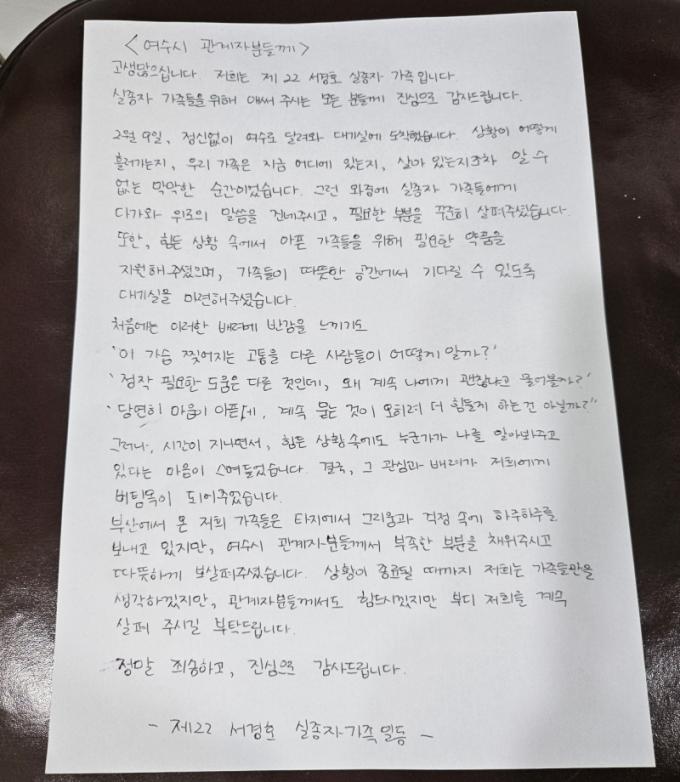 <여수시 관계자분들께>
고생많으십니다 저희는 제22 서경호 실종자 가족입니다.
실종자 가족들을 위해 애써 주시는 모든 분들께 진심으로 감사드립니다.
2월 9일, 정신없이 여수로 달려와 대기실에 도착했습니다. 상황이 어떻게
흘러가는지, 우리 가족은 지금 어디에 있는지, 살아 있는지조차 알 수
없는 막막한 순간이었습니다. 그런 와중에 실종자 가족들에게
다가와 위로의 말씀을 건네주시고, 필요한 부분을 꾸준히 살펴주셨습니다.
또한, 힘든 상황 속에서 아픈 가족들을 위해 필요한 약품을
지원해주셨으며, 가족들이 따뜻한 공간에서 기다릴 수 있도록
대기실을 마련해주셨습니다.
처음에는 이러한 배려에 반감을 느끼기도
'이 가슴 찢어지는 고통을 다른 사람들이 어떻게 알까?'
'정작 필요한 도움은 다른 것인데, 왜 계속 나에게 괜찮냐고 물어볼까?'
'당연히 마음이 아픈데, 계속 묻는 것이 오히려 더 힘들게 하는건 아닐까?'
그러나, 시간이 지나면서, 힘든 상황속에도 누군가가 나를 알아봐주고
있다는 마음이 스며들었습니다. 결국, 그 관심과 배려가 저희에게
버팀목이 되어주었습니다.
부산에서 온 저희 가족들은 타지에서 그리움과 걱정 속에 하루하루를
보내고 있지만, 여수시 관계자분들께서 부족한 부분을 채워주시고
따뜻하게 보살펴주셨습니다. 상황이 종료될 때까지 저희는 가족들만을
생각하겠지만, 관계자분들께서도 힘드시겠지만 부디 저희를 계속
살펴 주시길 부탁드립니다.
정말 죄송하고, 진심으로 감사드립니다.
- 제22 서경호 실종자가족일동 -